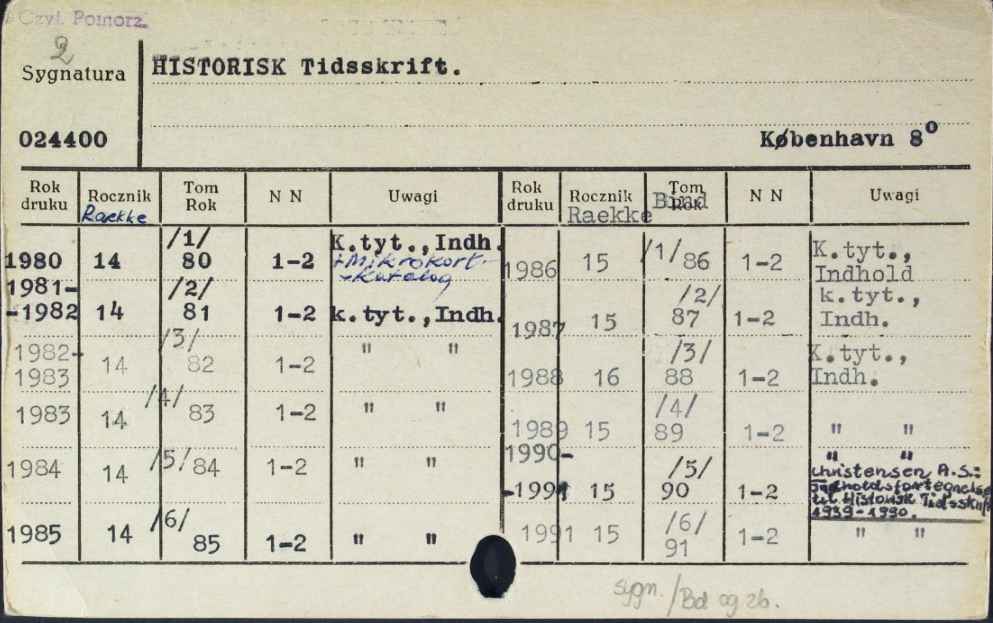 Czyt. Pomorz.
2
Sygnatura
HISTORISK Tidsskrift.
024400
København 8⁰
Rok druku Rocznik Tom Rok N N Uwagi Rok druku Rocznik Tom Rok N N Uwagi
Raekke Raekke Bind
1980 14 /1/ 80 1-2 K.tyt.,Indh. +Mikrokort- -Katalog 1986 15 /1/86 1-2 K.tyt., Indhold
1981- -1982 14 /2/ 81 1-2 k.tyt.,Indh. 1987 15 /2/ 87 1-2 k.tyt., Indh.
1982- 1983 14 /3/ 82 1-2 " " 1988 16 /3/ 88 1-2 K.tyt., Indh.
1983 14 /4/ 83 1-2 " " 1989 15 /4/ 89 1-2 " "
1984 14 /5/84 1-2 " " 1990- -1991 15 /5/ 90 1-2 " " Christensen A.S.: Indholdsfortegnelse til Historisk Tidsskrift 1939-1990.
1985 14 /6/ 85 1-2 " " 1991 15 /6/ 91 1-2 " "
sygn./Bd og zb.